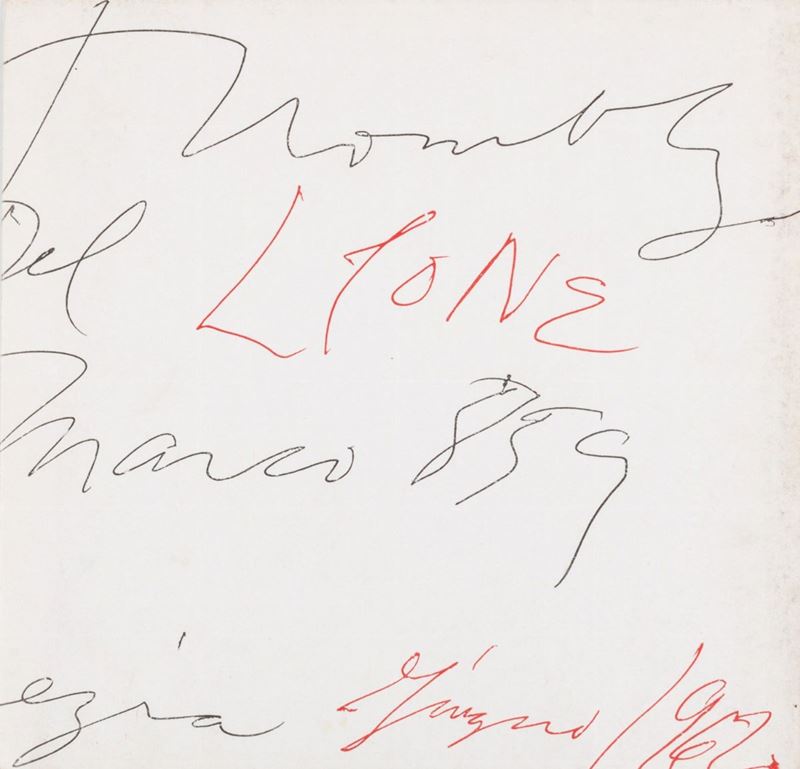 Twombly
Del LEONE
Marco 859
ezia Giugno 1962